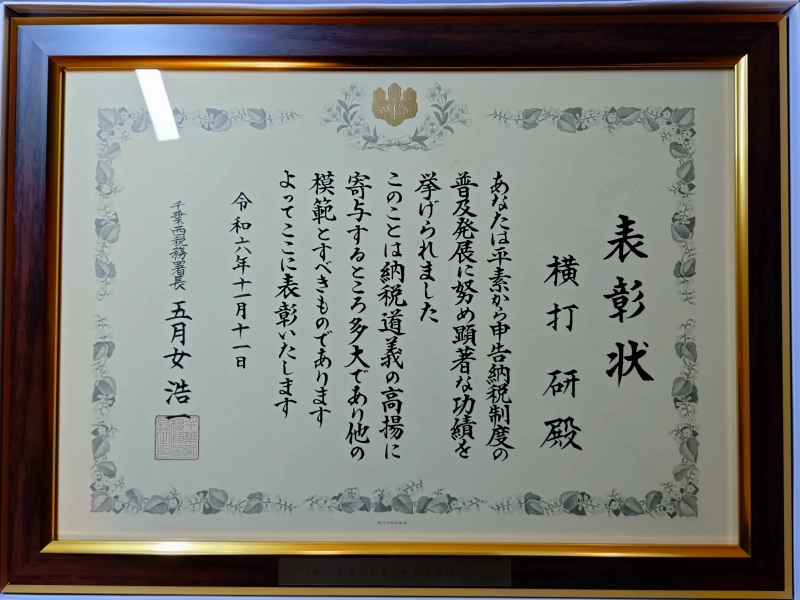 表彰状
横打 研 殿
あなたは平素から申告納税制度の
普及発展に努め顕著な功績を
挙げられました
このことは納税道義の高揚に
寄与するところ多大であり他の
模範とすべきものであります
よってここに表彰いたします
令和六年十一月十一日
千葉西税務署長 五月女 浩一